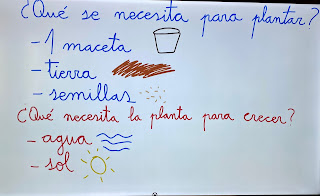 ¿Qué se necesita para plantar?
- 1 maceta
- tierra
- semillas
¿Qué necesita la planta para crecer?
- agua
- sol